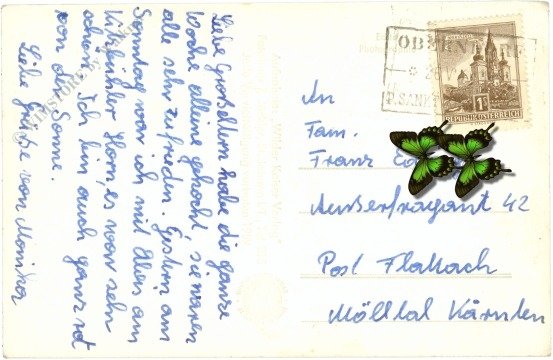 Liebe Großeltern habe die ganze
Woche alleine gekocht, sie waren
alle sehr zufrieden. Gestern am
Sonntag war ich mit am
Kitzbühler Horn, es war sehr
schön. Ich bin auch ganz rot
von der Sonne.
Liebe Grüße von Monika
OBERNDORF
P. SANKT
REPUBLIK ÖSTERREICH
An
Fam.
Franz
Außerfragant 42
Post Flattach
Mölltal Kärnten